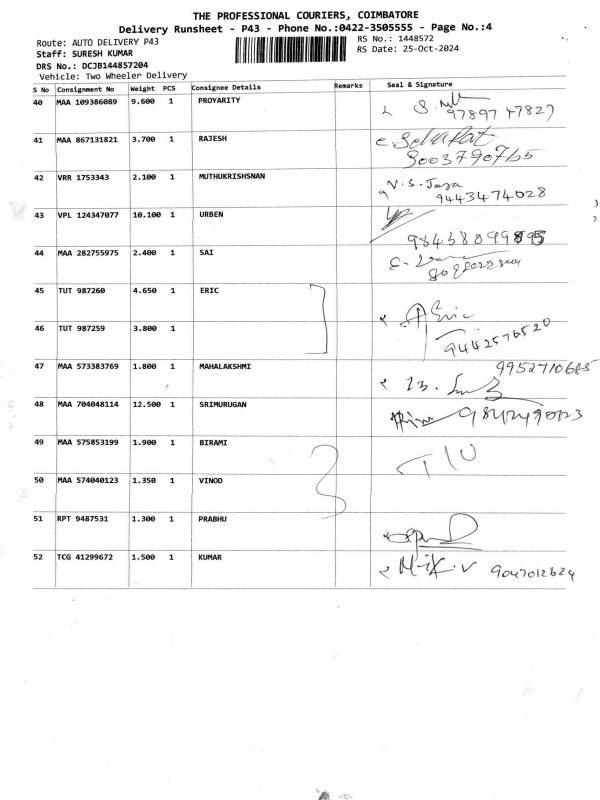 THE PROFESSIONAL COURIERS, COIMBATORE
Delivery Runsheet - P43 - Phone No.:0422-3505555 - Page No.:4
Route: AUTO DELIVERY P43
RS No.: 1448572
Staff: SURESH KUMAR
RS Date: 25-Oct-2024
DRS No.: DCJB144857204
Vehicle: Two Wheeler Delivery
S No Consignment No Weight PCS Consignee Details Remarks Seal & Signature
40 MAA 109386089 9.600 1 PROYARITY
97897 47827
41 MAA 867131821 3.700 1 RAJESH
9003790765
42 VRR 1753343 2.100 1 MUTHUKRISHSNAN V.S. Jaya
9443474028
43 VPL 124347077 10.100 1 URBEN
44 MAA 282755975 2.400 1 SAI
45 TUT 987260 4.650 1 ERIC Eric
46 TUT 987259 3.800 1 9442576520
47 MAA 573383769 1.800 1 MAHALAKSHMI 9952710685
48 MAA 704048114 12.500 1 SRIMURUGAN
49 MAA 575853199 1.900 1 BIRAMI
50 MAA 574040123 1.350 1 VINOD
51 RPT 9487531 1.300 1 PRABHU
52 TCG 41299672 1.500 1 KUMAR 9047012624